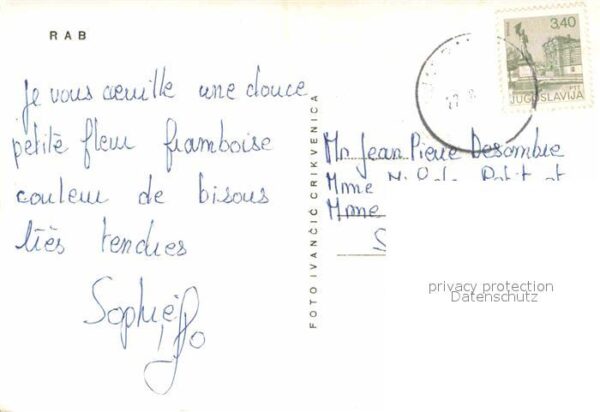 RAB
je vous cueille une douce
petite fleur framboise
couleur de bisous
très tendres
Sophie
FOTO IVANČIĆ CRIKVENICA
3,40
JUGOSLAVIJA
Mr Jean Pierre Desombre
Mme
Mme
privacy protection
Datenschutz